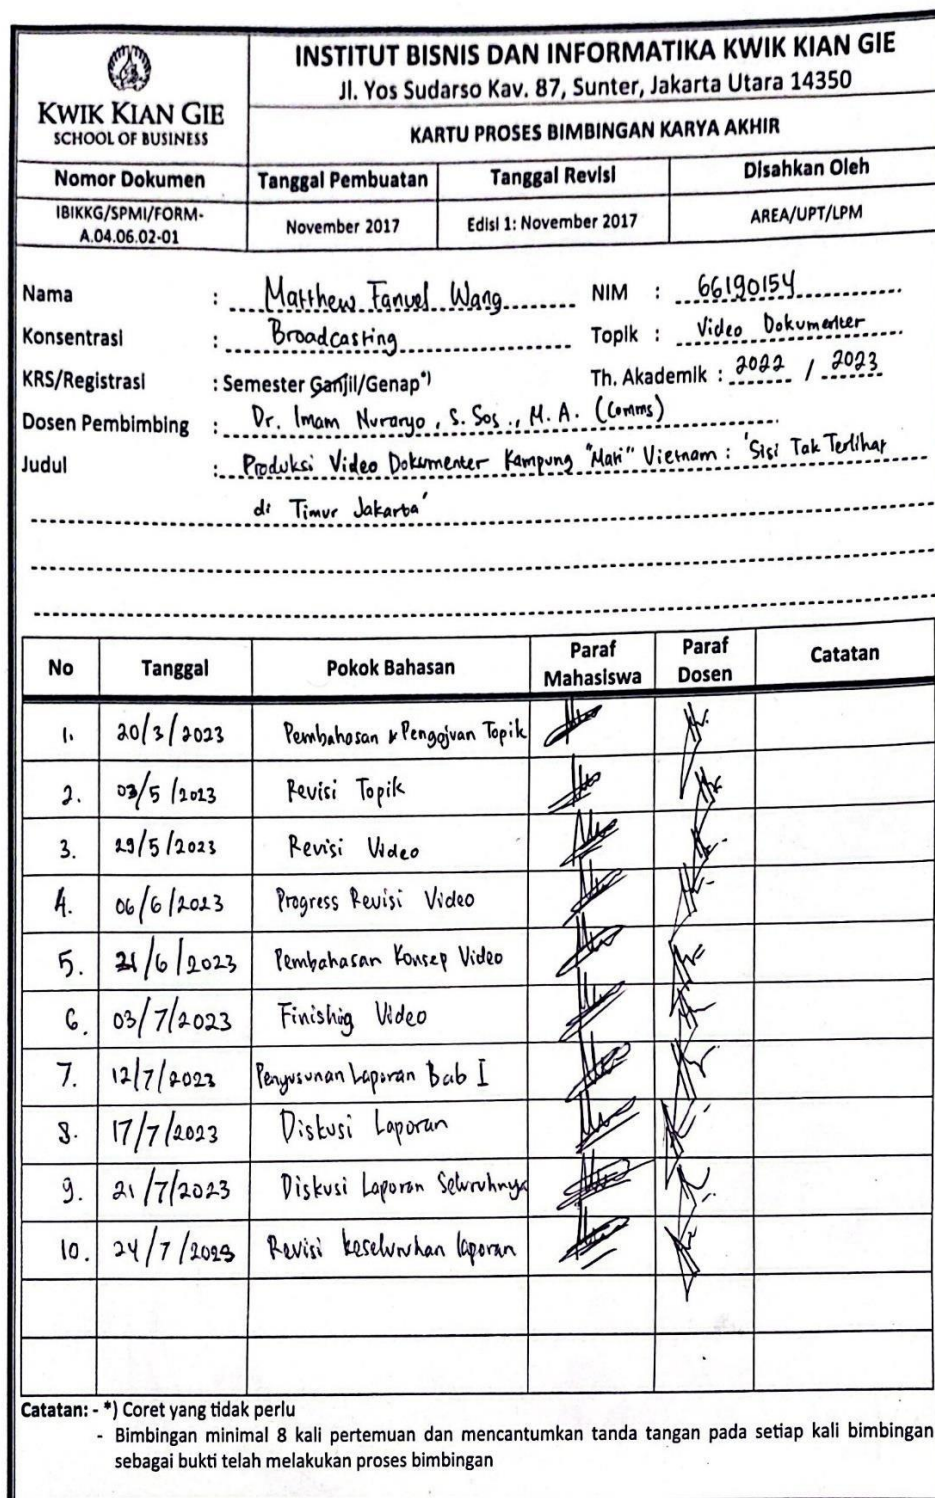 KWIK KIAN GIE
SCHOOL OF BUSINESS
INSTITUT BISNIS DAN INFORMATIKA KWIK KIAN GIE
Jl. Yos Sudarso Kav. 87, Sunter, Jakarta Utara 14350
KARTU PROSES BIMBINGAN KARYA AKHIR
Nomor Dokumen Tanggal Pembuatan Tanggal Revisi Disahkan Oleh
IBIKKG/SPMI/FORM-
A.04.06.02-01 November 2017 Edisi 1: November 2017 AREA/UPT/LPM
Nama : Matthew Fanuel Wang NIM : 66190154
Konsentrasi : Broadcasting Topik : Video Dokumenter
KRS/Registrasi : Semester Ganjil/Genap*) Th. Akademik : 2022 / 2023
Dosen Pembimbing : Dr. Imam Nuraryo, S. Sos., M. A. (Comms)
Judul : Produksi Video Dokumenter Kampung "Mati" Vietnam : 'Sisi Tak Terlihat
di Timur Jakarta'
No Tanggal Pokok Bahasan Paraf Mahasiswa Paraf Dosen Catatan
1. 20/3/2023 Pembahasan & Pengajuan Topik
2. 03/5/2023 Revisi Topik
3. 29/5/2023 Revisi Video
4. 06/6/2023 Progress Revisi Video
5. 21/6/2023 Pembahasan Konsep Video
6. 03/7/2023 Finishing Video
7. 12/7/2023 Penyusunan Laporan Bab I
8. 17/7/2023 Diskusi Laporan
9. 21/7/2023 Diskusi Laporan Seluruhnya
10. 24/7/2023 Revisi keseluruhan laporan
Catatan: - *) Coret yang tidak perlu
- Bimbingan minimal 8 kali pertemuan dan mencantumkan tanda tangan pada setiap kali bimbingan
sebagai bukti telah melakukan proses bimbingan